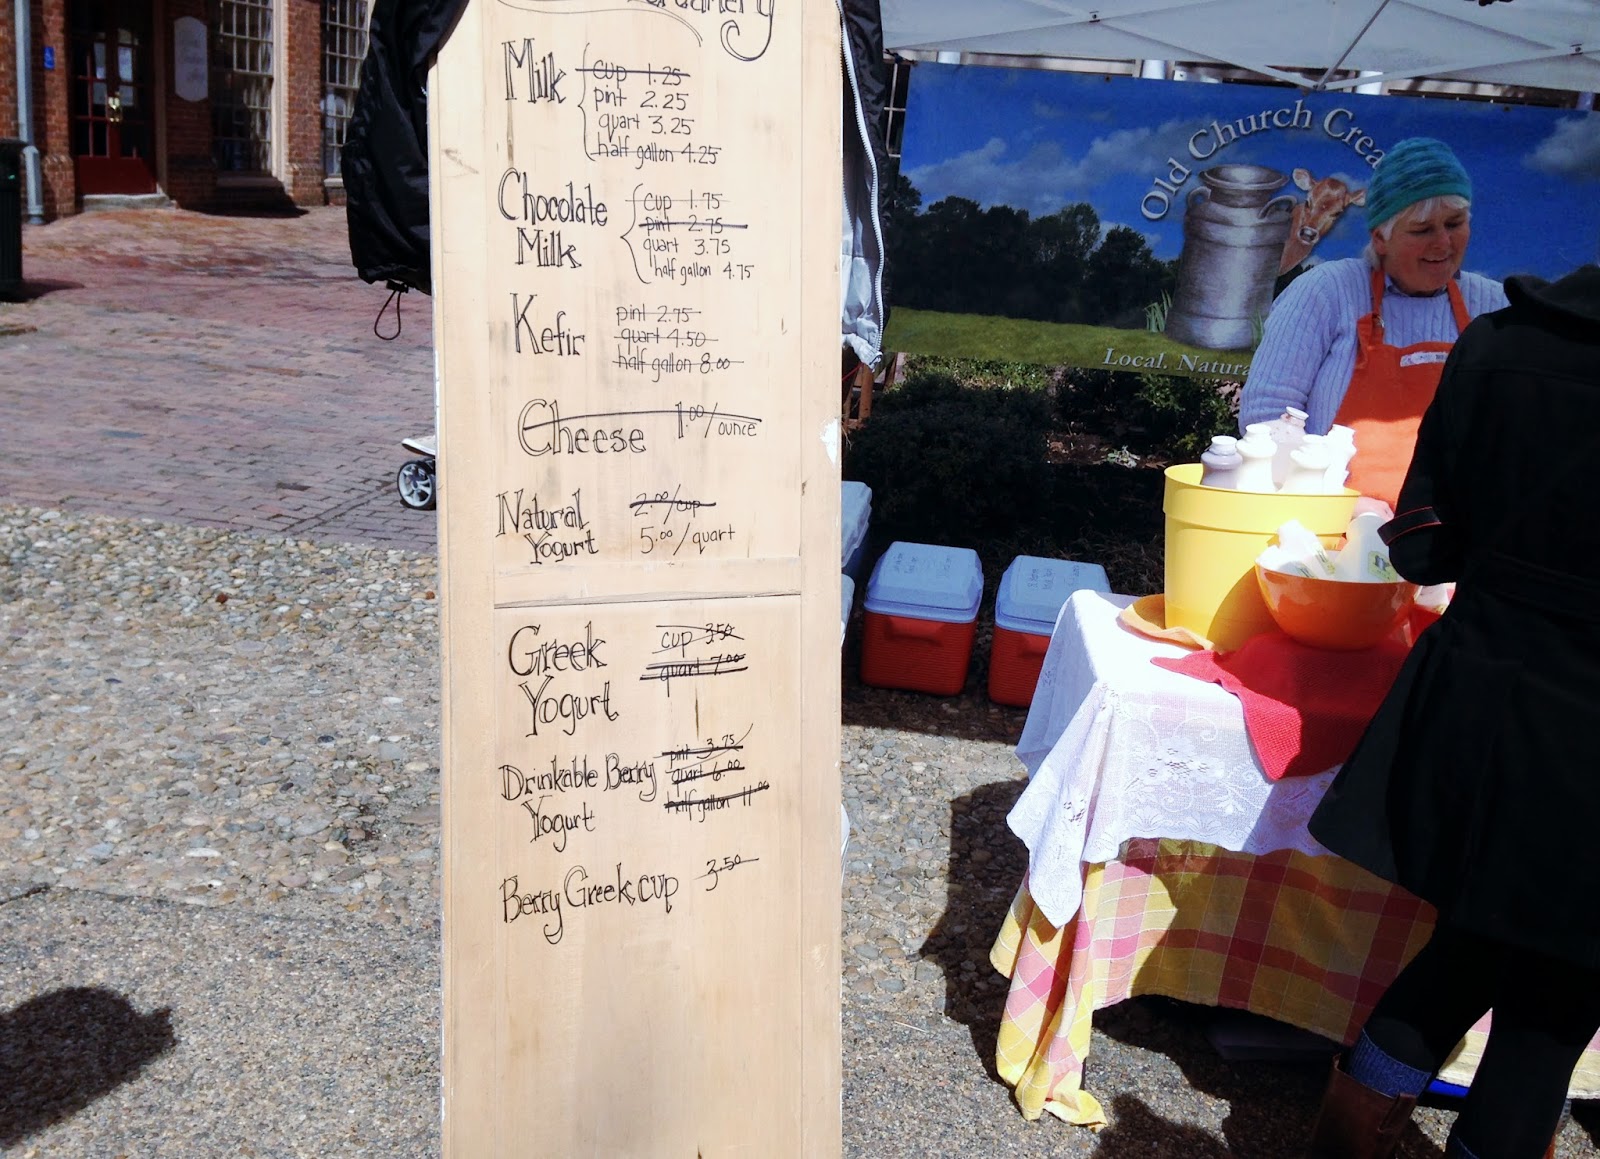 Creamery
Milk
cup 1.25
pint 2.25
quart 3.25
half gallon 4.25
Chocolate
Milk
cup 1.75
pint 2.75
quart 3.75
half gallon 4.75
Kefir
pint 2.75
quart 4.50
half gallon 8.00
Cheese 1.00/ounce
Natural
Yogurt
2.00/cup
5.00/quart
Greek
Yogurt
cup 3.50
quart 7.00
Drinkable Berry
Yogurt
pint 3.75
quart 6.00
half gallon 11.00
Berry Greek cup 3.50
Old Church Crea
Local. Natura